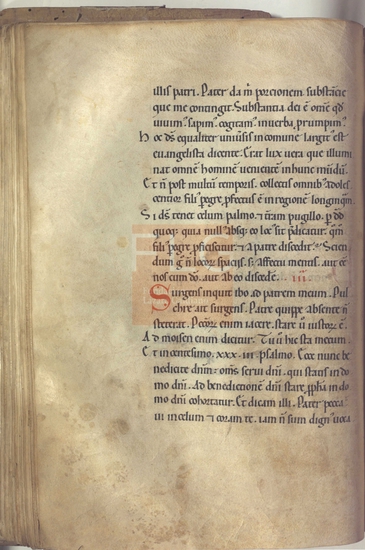 illis patri. Pater da m̄ porcionem substācie
que me contingit. Substantia dei ē om̄e qd̄
uiuim᷒ sapim᷒ cogitam᷒ in uerba prumpim᷒
Hoc ds̄ equaliter uniuersis in comune largit᷒ est
euangelista dicente. Erat lux uera que illumi
nat omnē hominē uenientē in hunc mūdū.
Et n̄ post multū temporis. collectis omnib᷒ adoles
centior fili᷒ pegre, pfectus ē in regionē longinqm̄
Si ds̄ tenet celum palmo. et t̄ram pugillo.
fili᷒ pegre pficiscitur. et a patre discedit. Scien
dum
nos cum dō. aut ab eo discedē. iii
Surgens inquit ibo ad patrem meum. Pul
chre ait surgens. Patre quippe absente n̄
steterat. Peccōre enim iacere. stare ū iustorē ē.
Ad moisen enim dicitur. Tu ū hic sta mecum.
Et in centesimo. xxx. iii. psalmo. Ecce nunc be
nedicite dnm̄. oms̄ serui dn̄i. qui statis in do
mo dn̄i. Ad benedictionē dn̄i stare, ppħa in do
mo dn̄i cohortatur. Et dicam illi. Pater pecca
ui in celum et coram te. iam n̄ sum dign᷒ uoca